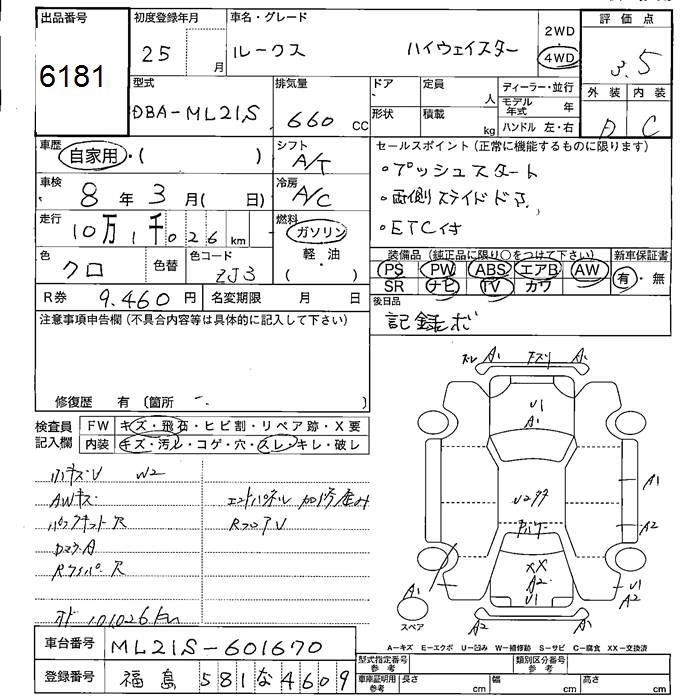 出品番号
6181
初度登録年月
25 月
車名・グレード
ルークス ハイウェイスター
2WD
4WD
評価点
3.5
外装 内装
A C
型式
DBA-ML21S
排気量
660 cc
ドア
形状
定員 人
積載 kg
ディーラー・並行
モデル年式 年
ハンドル 左・右
車歴
自家用・( )
シフト
A/T
セールスポイント (正常に機能するものに限ります)
・プッシュスタート
・両側スライドドア
・ETC付
車検
8年3月( 日)
冷房
A/C
走行
10万1千026km
燃料
ガソリン
軽・油
( )
色
クロ
色替
色コード
ZJ3
装備品 (純正品に限り○をつけて下さい)
PS PW ABS エアB AW
SR ナビ TV カワ
新車保証書
有・無
R券 9.460円
名変期限 月 日
後日品
記録ボ
注意事項申告欄 (不具合内容等は具体的に記入して下さい)
修復歴 有 (箇所
検査員記入欄
FW キズ・飛石・ヒビ割・リペア跡・X要
内装 キズ・汚レ・コゲ・穴・スレ・キレ・破レ
W2
AWキズ
R A
101026km
A1 A1
U1
A1
A1
A2
XX
A2
U1
A1
スペア
U1
A2
A2 A2
車台番号 ML21S-601670
登録番号 福島 581 な 4609
A-キズ E-エクボ U-凹み W-補修跡 S-サビ C-腐食 XX-交換済
型式指定番号 参考
類別区分番号 参考
車庫証明用 参考
長さ cm
幅 cm
高さ cm